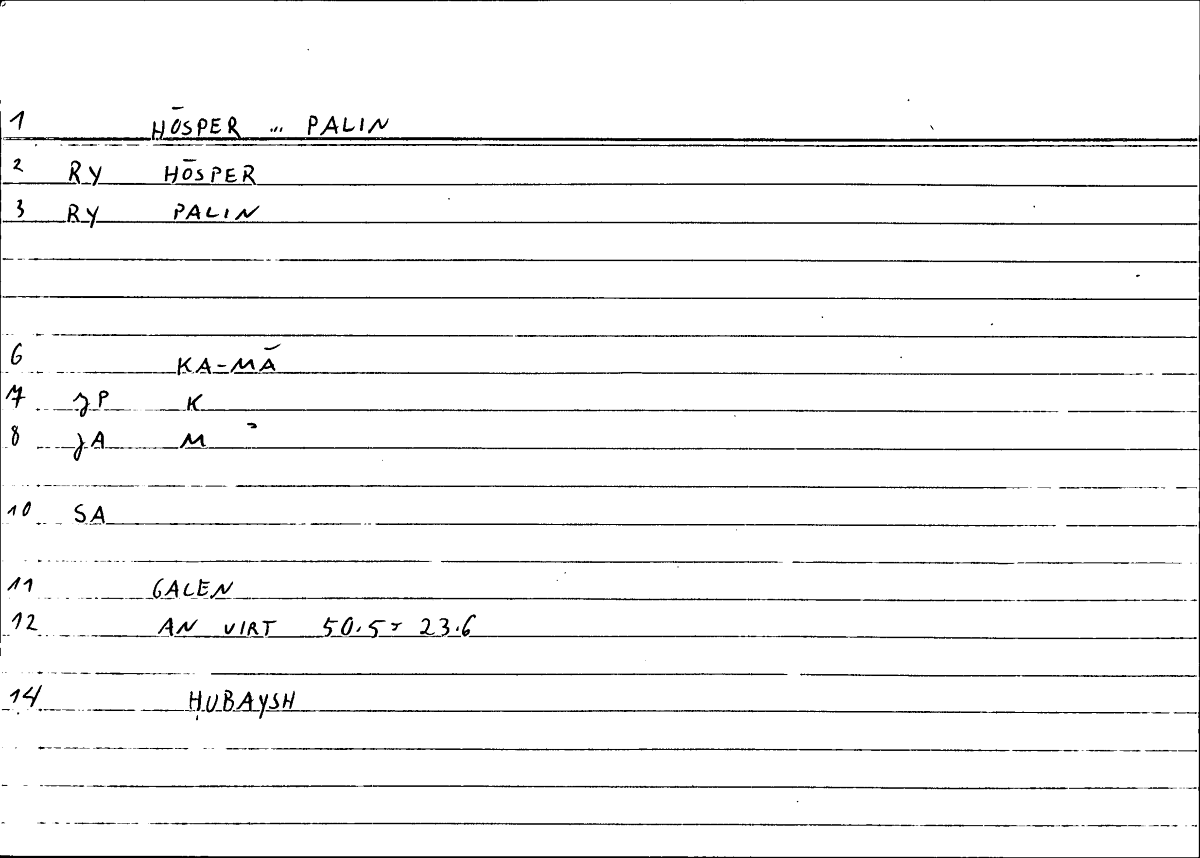 1 HŌSPER ... PALIN
2 RY HŌSPER
3 RY PALIN
6 KA-MĀ
7 JP K
8 JA M
10 SA
11 GALEN
12 AN VIRT 50.5 23.6
14 ḤUBAYSH